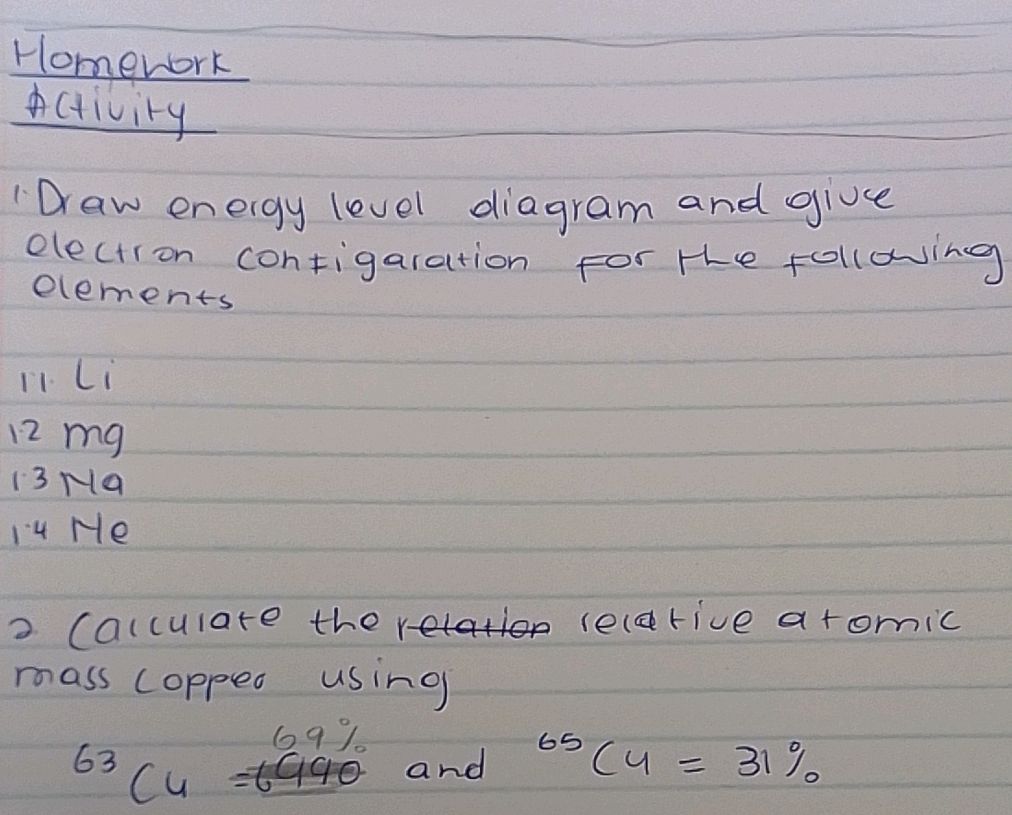 Homework
Activity
1. Draw energy level diagram and giuve
electron configaration for the following
elements
1.1. Li
1.2 mg
1.3 Na
1.4 Ne
2 Calculate the relation relative atomic
mass copper using
69%
63 Cu = and 65 Cu = 31%